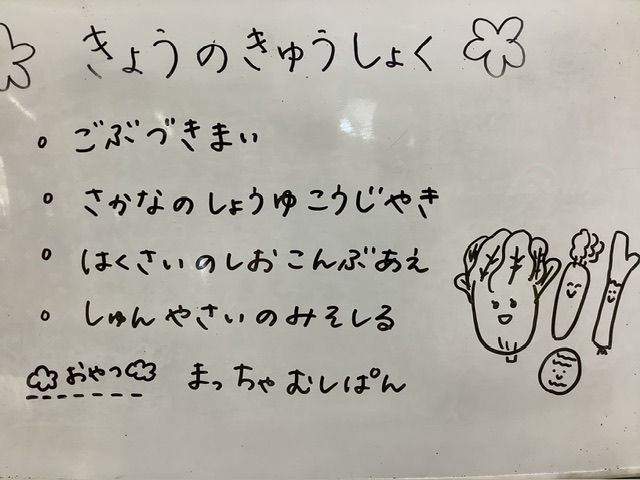 きょうのきゅうしょく
。ごぶづきまい
。さかなのしょうゆこうじやき
。はくさいのしおこんぶあえ
。しゅんやさいのみそしる
おやつ まっちゃむしぱん